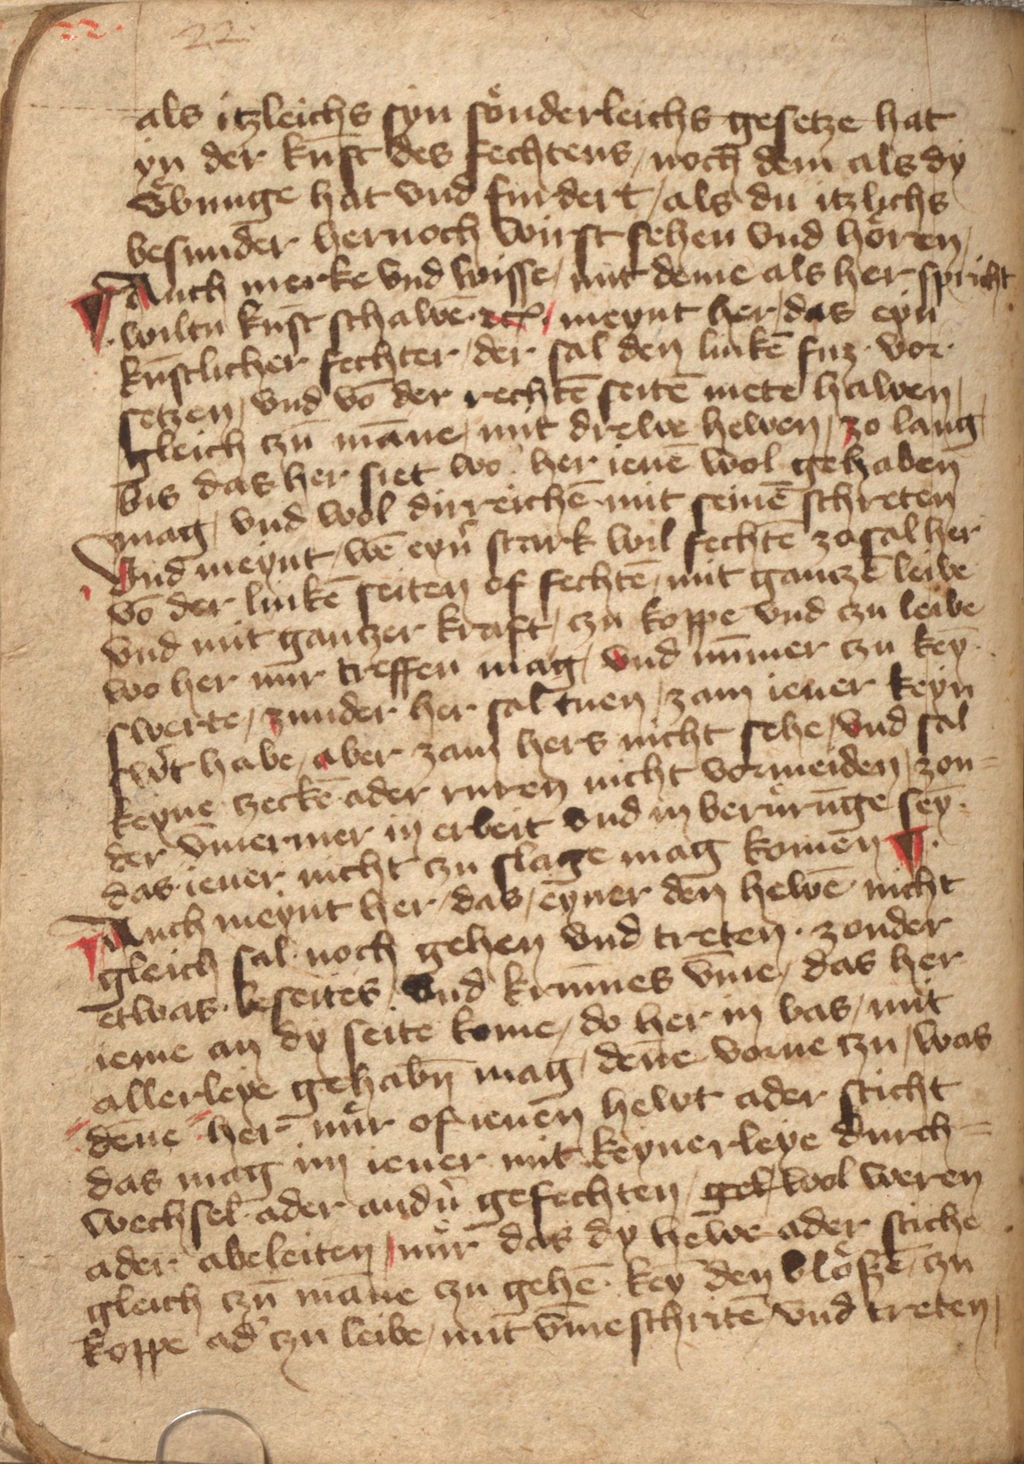 22.
22
als itzleichs syn sönderleichs gesetze hat
yn der kunst des fechtens / noch dem als dy
Übunge hat vnd fudert / als du itzlichs
besunder hernoch wirst sehen vnd hören /
Auch merke vnd wisse / mit deme als her spricht
wiltu kunst schawē · etc̄ / meynt her / das eyn
kunstlicher fechter / der sal den linkē fuz · vor ·
setzen / vnd vō der rechtē seitē mete hawen /
gleich czu māne / mit drewe hewen / zo lang
bis das her siet wo her ienē wol gehaben
mag / vnd wol dirreichē mit seinē schreten
Vnd meynt / wē eyn̄ stark wil fechtē zo sal her
vō der linkē seiten of fechtē / mit gantzē leibe
vnd mit gantzer kraft / czu koppe vnd czu leibe
wo her nur treffen mag / vnd nӯmer czu keȳ ·
swerte / zunder her sal tuen / zam iener keyn
sw̄t habe / aber zam hers nicht sehe / vnd sal
keyne czeckē ader ruren nicht vormeiden / zon =
der ӯmermer in erbeit vnd in berürūge seȳ ·
das iener nicht zu slage mag komen ¶ ·
Auch meynt her / das / eyner den hewē nicht
gleich sal noch gehen vnd treten · zonder
etwas beseites / vnd krummes vme / das her
ieme an dy seite kome / do her in bas / mit
allerleye gehabn̄ mag / dēne vorne czu / was
dēne her nür of ienen hewt ader sticht
das mag im iener mit keynerleye durch =
wechsel ader andn̄ gefechten / wol weren
ader abeleiten / nür das dy hewe ader stiche
gleich czu māne czu gehē · keȳ den blößē / czu
koppe ad' czu leibe / mit vmeschritē / vnd treten /